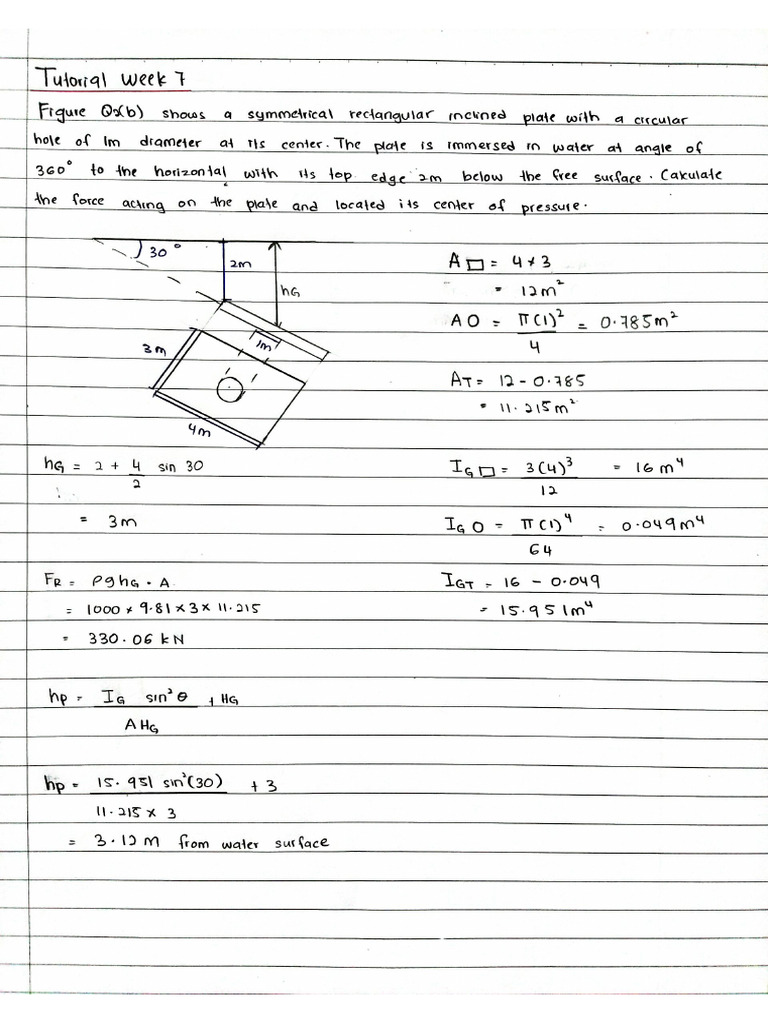 Tutorial Week 7
Figure Q2(b) shows a symmetrical rectangular inclined plate with a circular
hole of 1m diameter at its center. The plate is immersed in water at angle of
360° to the horizontal with its top edge 2m below the free surface. Calculate
the force acting on the plate and located its center of pressure.
30°
2m
hG
1m
3m
4m
A▭ = 4 × 3
= 12m²
AO = π(1)²/4 = 0.785m²
AT = 12 - 0.785
= 11.215m²
hG = 2 + 4/2 sin 30
= 3m
IG▭ = 3(4)³/12 = 16m⁴
IGO = π(1)⁴/64 = 0.049m⁴
IGT = 16 - 0.049
= 15.951m⁴
FR = ρghG · A
= 1000 × 9.81 × 3 × 11.215
= 330.06 kN
hp = IG sin²θ/AHG + HG
hp = 15.951 sin²(30)/11.215 × 3 + 3
= 3.12m from water surface